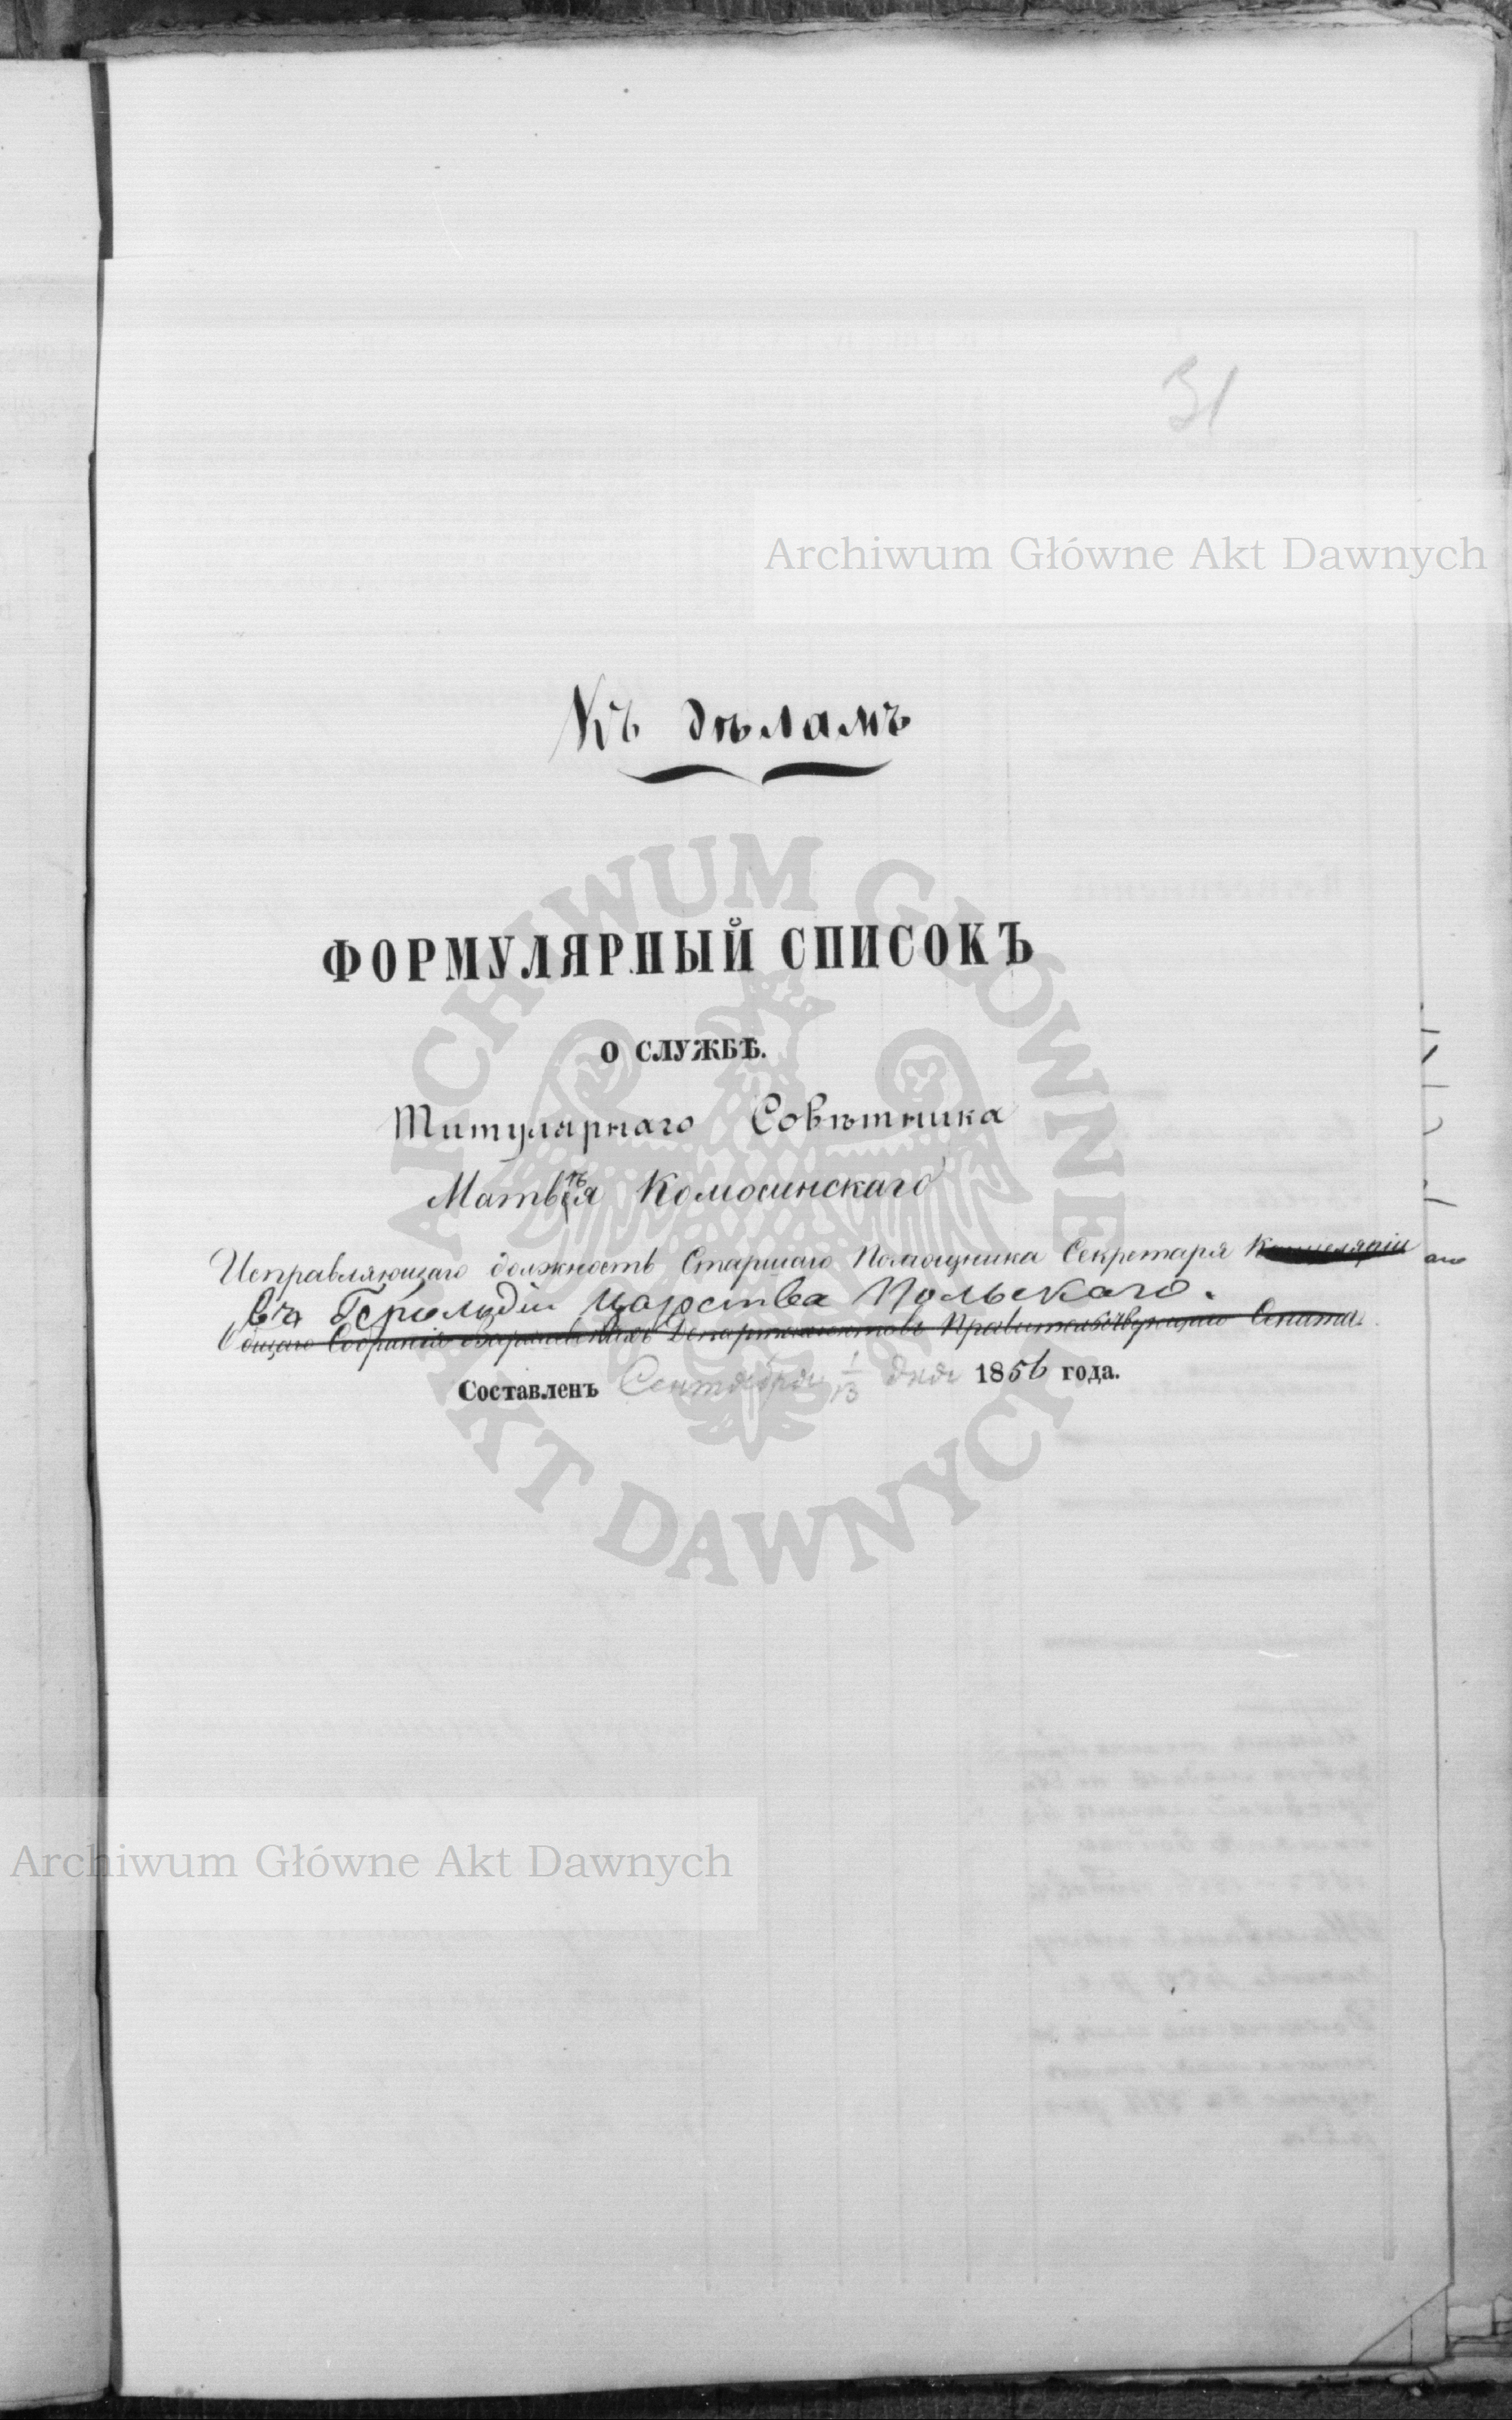 31
Archiwum Główne Akt Dawnych
Къ дѣламъ
ФОРМУЛЯРНЫЙ СПИСОКЪ
О СЛУЖБѢ.
Титулярнаго Совѣтника
Матвѣя Комосинскаго
Исправляющаго должность Старшаго Помощника Секретаря Канцеляріи
въ Герольдіи Царства Польскаго.
Общаго Собранія Варшавскихъ Департаментовъ Правительствующаго Сената.
Составленъ Сентября 1/13 дня 1856 года.
Archiwum Główne Akt Dawnych
ARCHIWUM GŁÓWNE AKT DAWNYCH